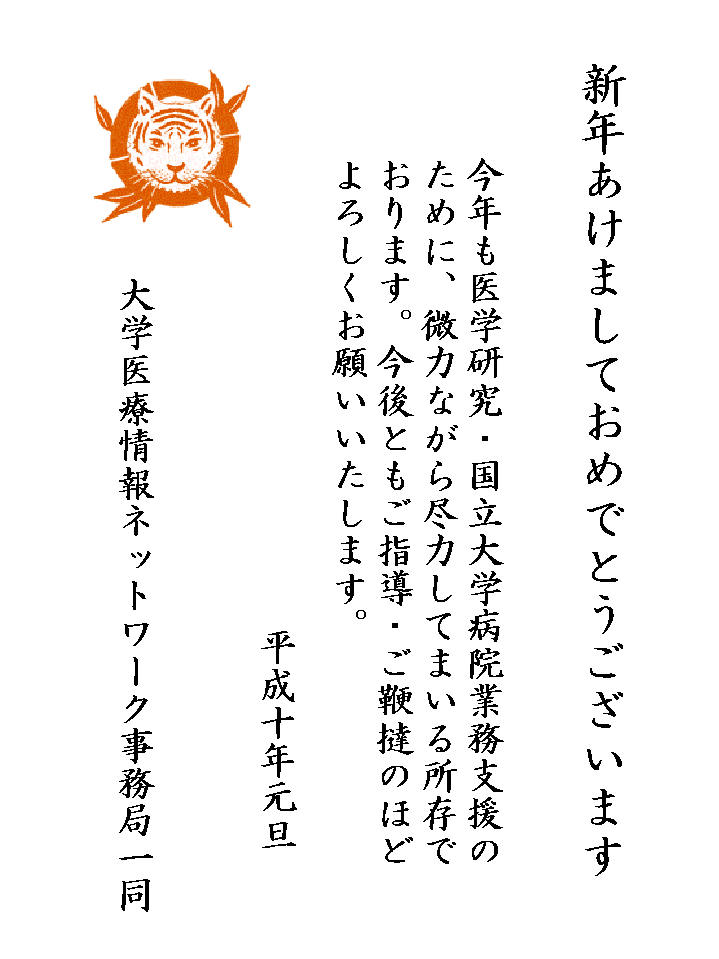 新年あけましておめでとうございます
今年も医学研究・国立大学病院業務支援の
ために、微力ながら尽力してまいる所存で
おります。今後ともご指導・ご鞭撻のほど
よろしくお願いいたします。
平成十年元旦
大学医療情報ネットワーク事務局一同